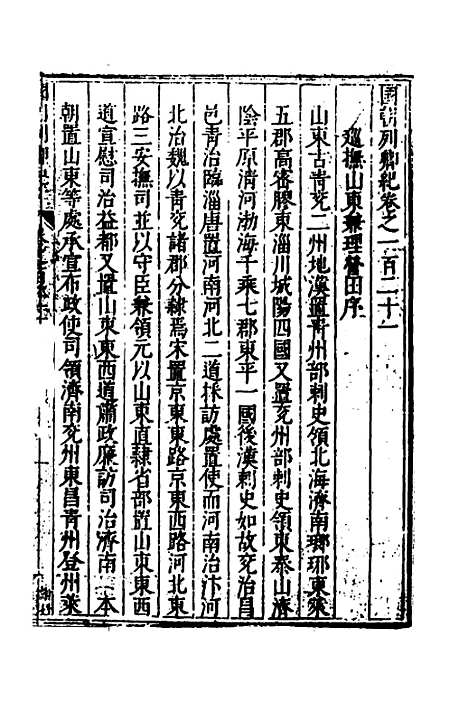 國朝列卿紀卷之一百二十一
巡撫山東兼理營田序
山東古靑兗二州地漢置靑州部刺史領北海濟南瑯琊東萊
五郡高密膠東淄川城陽四國又置兗州部刺史領東泰山濟
陰平原清河渤海千乘七郡東平一國後漢刺史如故兗治昌
邑靑治臨淄唐置河南河北二道採訪處置使而河南治汴河
北治魏以靑兗諸郡分隸焉宋置京東東路京東西路河北東
路三安撫司並以守臣兼領元以山東直隸省部置山東東西
道宣慰司治益都又置山東東西道肅政廉訪司治濟南本
朝置山東等處承宣布政使司領濟南兗州東昌靑州登州萊